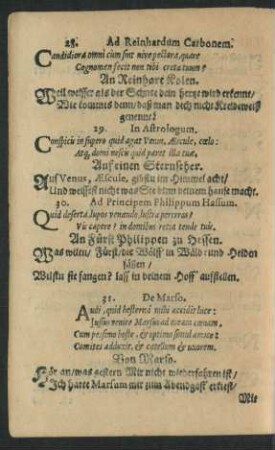 28. Ad Reinhardum Carbonem.
Candidiora omni cùm sint nive pectora, quare
Cognomen facit non tibi creta tuum?
An Reinhart Kolen.
Weil weisser als der Schnee dein hertz wird erkente/
Wie kommts denn/ daß man dich nicht Kreideweiß
genennt?
29. In Astrologum.
Conspicis in supero quid agat Venus, Æscule, cœlo:
Atq, domi nescis quid paret illa tuæ.
Auf einen Sternseher.
Auf Venus, Æscule, gibstu im Himmel acht/
Und weissest nicht was Sie in deinem hause macht.
30. Ad Principem Philippum Hassum.
Quid deserta lupos venando lustra pererras?
Vis capere? in domibus retia tende tuis.
An Fürst Philippen zu Hessen.
Was wilen/ Fürst/ der Wölff' in Wäld- und Heiden
fällen/
Wilstu sie fangen? lass in deinem Hoff aufstellen.
31. De Marso.
Audi, quid hesternâ mihi acciderit luce:
Jussus venire Marsus ad meam cœnam,
Cum pessimo hoste, & optimo simul amico:
Comites adduxit, & catellum & uxorem.
Von Marso.
Hör an/ was gestern Mir nicht wiederfahren ist/
Ich hatte Marsum mir zum Abendgast erkiest/
Mit